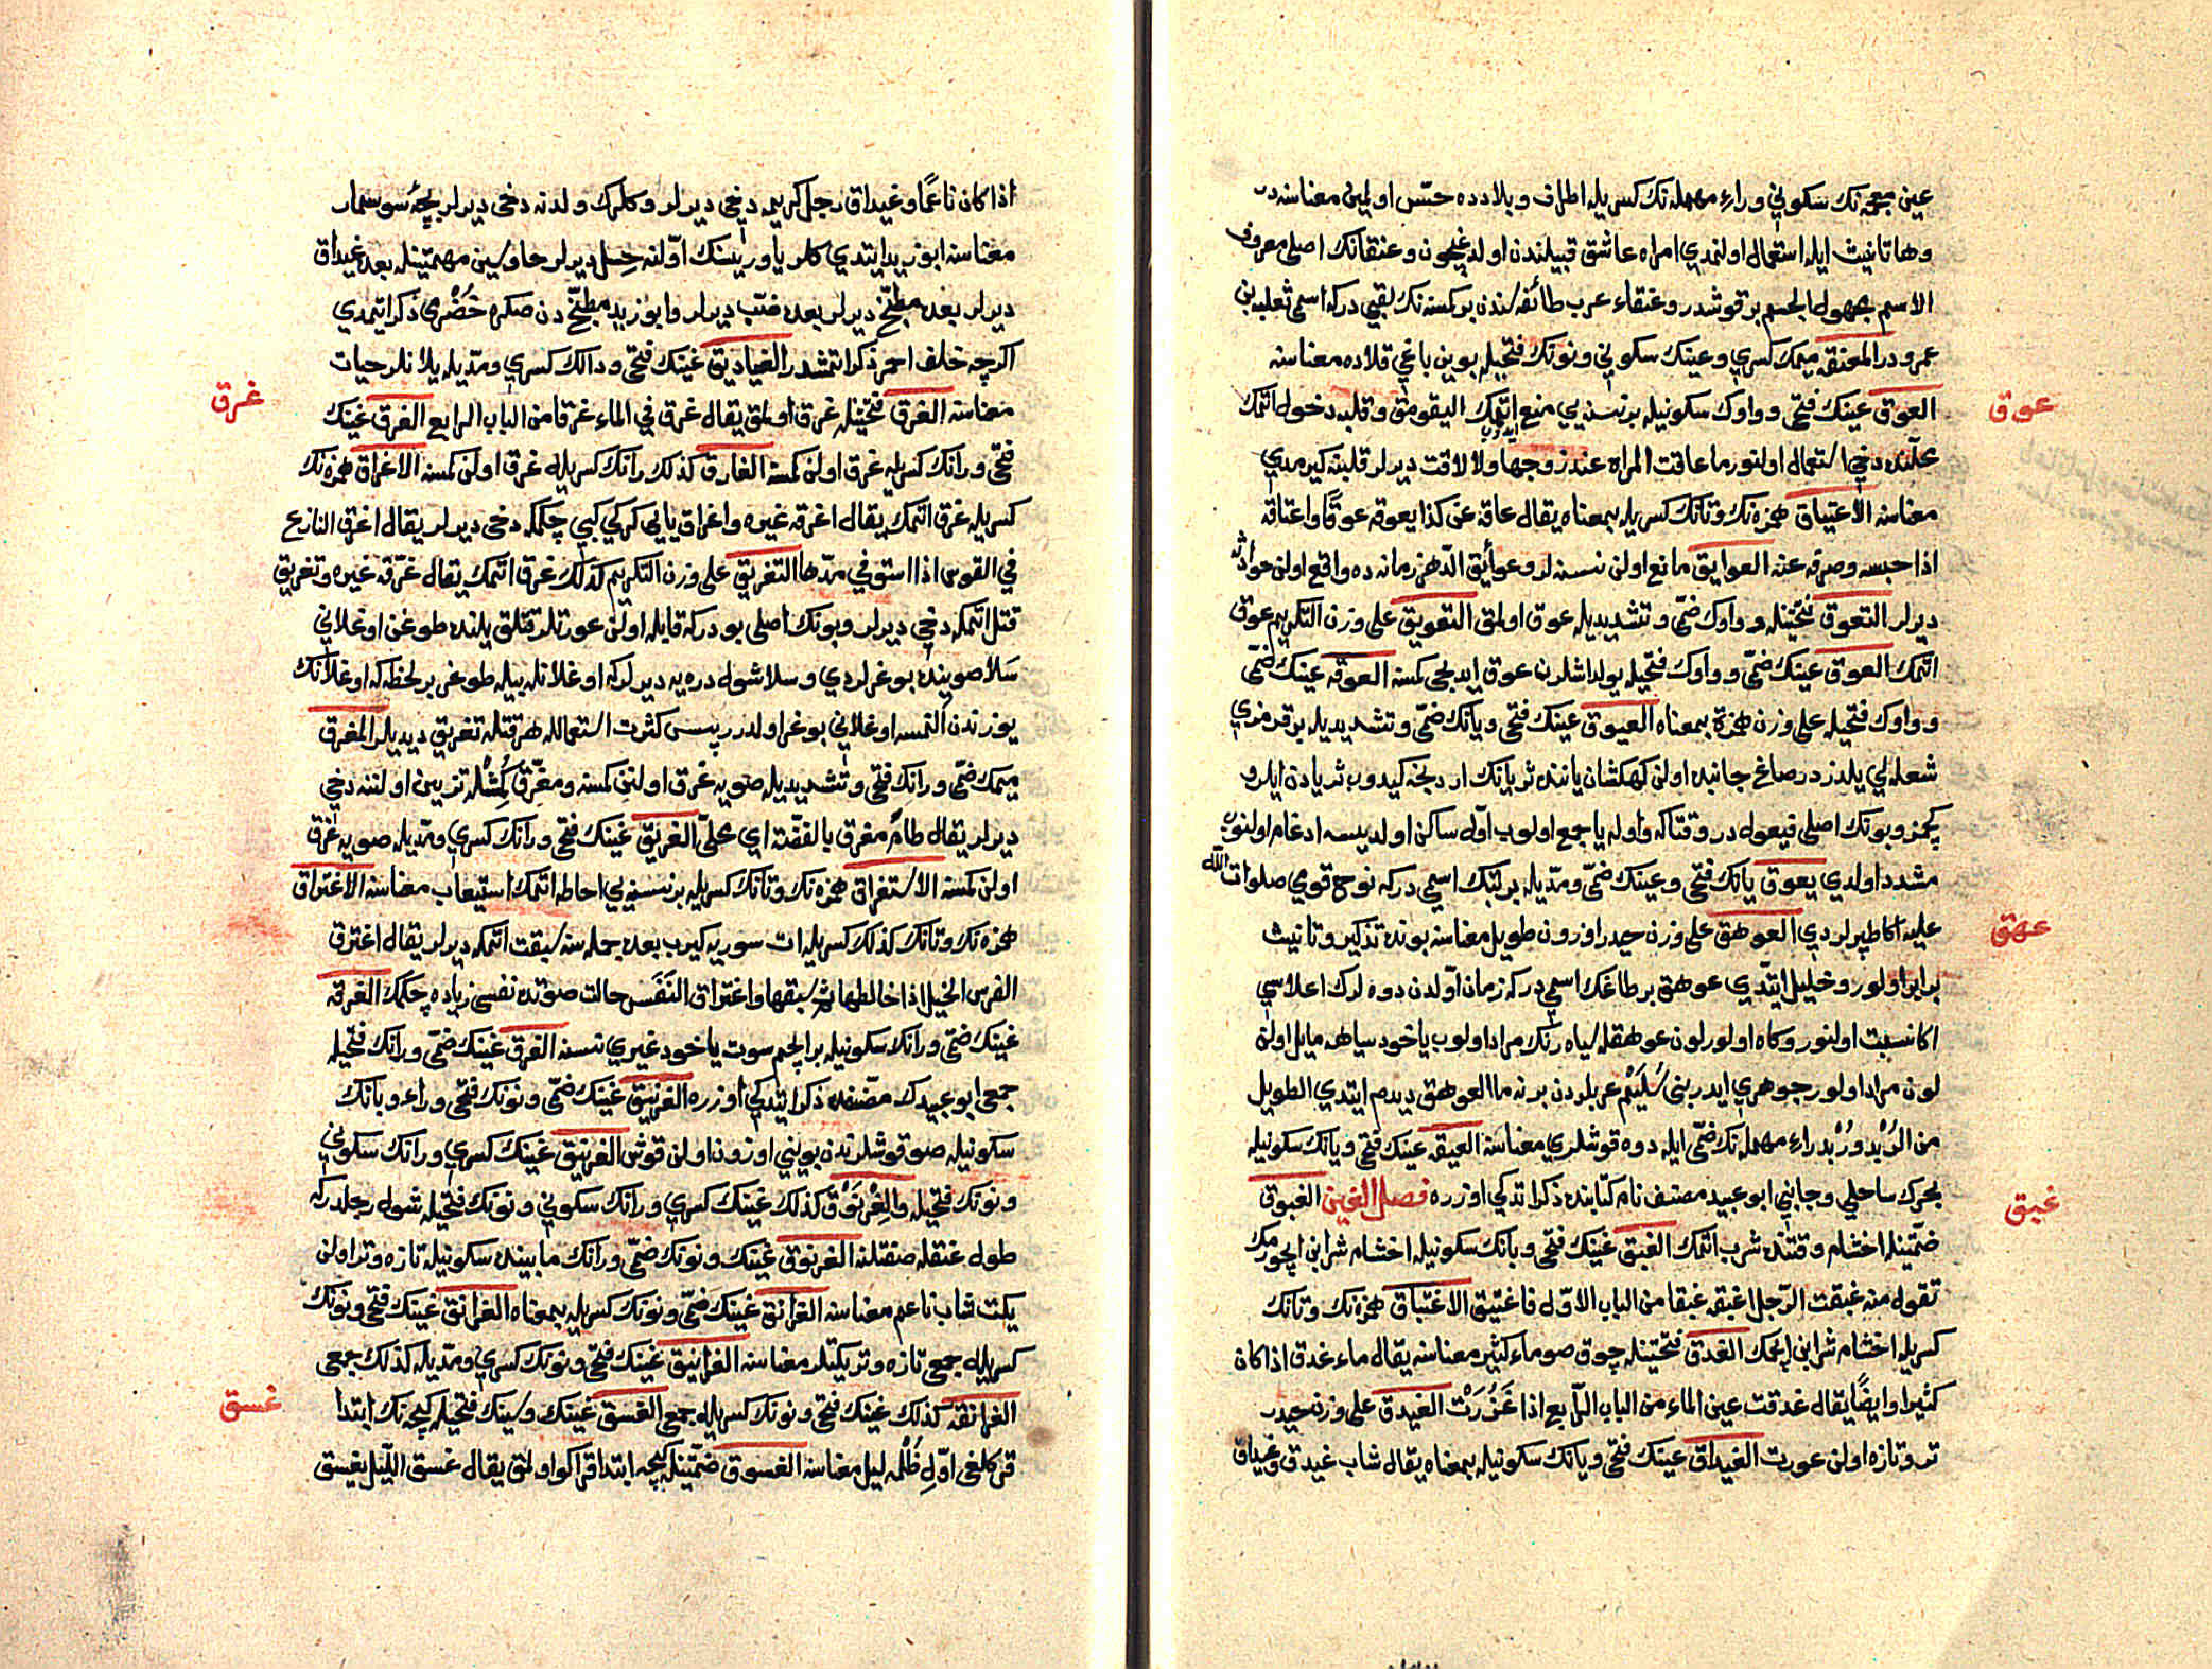 عين معجمه نك سكوني وراء مهمله نك كسريله اطراف وبلادده حسّ اولمين معناسنه در
وها تانيث ايله استعمال اولنمدي امراه عاشق قبيلندن اولديغيچون وعنقانك اصلي معروف
الاسم مجهول الجسم بر قوشدر وعنقاء عرب طائفه لندن بر كسنه نك لقبي در كه اسمي ثعلبه بن
عمرو در المعنقه ميمك كسري وعينك سكوني ونونك فتحيله بوين باغي قلاده معناسنه
عوق
العوق عينك فتحي وواوك سكونيله بر نسنه يي منع اتمك اليقومق وقلبه دخول اتمك
محلّنده دخي استعمال اولنور ما عاقت المراه عند زوجها ولا لاقت ديرلر قلبنه كيرمدي
معناسنه الاعتياق همزه نك وتانك كسريله بمعناه يقال عاقه عن كذا يعوقه عوقًا واعتاقه
اذا حبسه وصرفه عنه العوايق مانع اولن نسنه لر وعوائق الدّهر زمانه ده واقع اولن حوادثه
ديرلر التعوق فتحتينله وواوك ضمّي وتشديديله عوق اولمق التعويق على وزن التكريم عوق
اتمك العوق عينك ضمّي وواوك فتحيله يولداشلرن عوق ايديجي كمسنه العوقه عينك ضمّي
وواوك فتحيله على وزن همزة بمعناه العيوق عينك فتحي ويانك ضمّي وتشديديله بر قزمزي
شعله لي يلدزدر صاغ جانبده اولن كهكشان ياننده ثريانك اردنجه كيدوب ثريادن ايلرو
كچمز وبونك اصلي فيعول در وقتاكه واوله يا جمع اولوب اوّل ساكن اولديسه ادغام اولنوب
مشدد اولدي يعوق يانك فتحي وعينك ضمّي ومدّيله بر بتك اسمي در كه نوح قومي صلوات الله
عهق
عليه اكا طپرلردي العوهق على وزن حيدر اوزون طويل معناسنه بونده تذكير وتانيث
برابر اولور وخليل ايتدي عوهق بر طاغك اسمي در كه زمان اوّلدن دوه لرك اعلاسي
اكا نسبت اولنور وكاه اولور لون عوهقله سياه رنك مراد اولوب ياخود سياهه مايل اولن
لون مراد اولور جوهري ايدر بني سُلَيْم عربلردن برنه ما العوهق ديدم ايتدي الطويل
من الرُبْد ورُبْد راء مهمله نك ضمّي ايله دوه قوشلري معناسنه العيقه عينك فتحي ويانك سكونيله
غبق
بحرك ساحلي وجانبي ابو عبيد مصنف نام كتابنده ذكر اتدكي اوزره فصل الغين الغبوق
ضمّتينله اخشام وقتنده شرب اتمك الغبق غينك فتحي وبانك سكونيله اخشام شرابن ايچورمك
تقول منه غبقت الرّجل اغبقه غبقا من الباب الاوّل فاغتبق الاغتباق همزه نك وتانك
كسريله اخشام شرابن ايچمك الغدق فتحتينله چوق صو ماء كثير معناسنه يقال ماء غدق اذا كان
كثيرا وايضًا يقال غدقت عين الماء من الباب الرّابع اذا غَزُرَتْ الغيدق على وزن حيدر
تر وتازه اولن عورت الغيداق عينك فتحي ويانك سكونيله بمعناه يقال شاب غيدق وغيداق
اذا كان ناعمًا وغيداق رجل كريمه دخي ديرلر وكلرك ولدنه دخي ديرلر بچّۀ سوسمار
معناسنه ابو زيد ايتدي كلر ياوريسنك اوّلنه حِسل ديرلر حا وسين مهملتينله بعده غيداق
ديرلر بعده مطبّخ ديرلر بعده ضبّ ديرلر وابو زيد مطبّخ دن صكره خُضْري ذكر اتمدي
اكرچه خلف احمر ذكر اتمشدر الغياديق غينك فتحي ودالك كسري ومدّيله يلانلر حيات
غرق
معناسنه الغرق فتحتينله غرق اولمق يقال غرق في الماء غرقا من الباب الرابع الغرق غينك
فتحي ورانك كسريله غرق اولن كمسنه الغارق كذلك رانك كسريله غرق اولن كمسنه الاغراق همزه نك
كسريله غرق اتمك يقال اغرقه غيره واغراق يايي كركي كبي چكمكه دخي ديرلر يقال اغرق النازع
في القوس اذا استوفي مدّها التغريق على وزن التكريم كذلك غرق اتمك يقال غرّقه غيره وتغريق
قتل اتمكه دخي ديرلر وبونك اصلي بودركه قابله اولن عورتلر قتلق يلنده طوغن اوغلاني
سلا صوينده بوغرلردي وسلا شول دره يه ديرلركه اوغلانله بيله طوغر بر لحظه كه اوغلانك
يوزندن التمسه اوغلاني بوغر اولدر پس كثرت استعمالله هر قتله تغريق ديديلر المغرق
ميمك ضمّي ورانك فتحي وتشديديله صويه غرق اولنن كمسنه ومغرّق كُمُشْله تزيين اولننه دخي
ديرلر يقال لجام مغرق بالفضّة اي محلّى الغريق غينك فتحي ورانك كسري ومدّيله صويه غرق
اولن كمسنه الاستغراق همزه نك وتانك كسريله بر نسنه يي احاطه اتمك استيعاب معناسنه الاغتراق
همزه نك وتانك كذلك كسريله ات سوريه كيرب بعده جمله سنه سبقت اتمكه ديرلر يقال اغترق
الفرس الخيل اذا خالطها ثم سبقها واغتراق النَفَس حالت صوتده نفسي زياده چكمك الغرقه
غينك ضمّي ورانك سكونيله بر ايچم سوت ياخود غيري نسنه الغرق غينك ضمّي ورانك فتحيله
جمعي ابو عبيدك مصنفده ذكر اتدكي اوزره الغرنيق غينك ضمّي ونونك فتحي وراء ويانك
سكونيله صو قوشلرندن بويني اوزون اولن قوش الغرنيق غينك كسري ورانك سكوني
ونونك فتحيله والغِرْنَوْق كذلك غينك كسري ورانك سكوني ونونك فتحيله شول رجلدركه
طول عنقله صفتلنه الغرنوق غينك ونونك ضمّي ورانك مابينده سكونيله تازه وتر اولن
يكت شاب ناعم معناسنه الغرانق غينك ضمّي ونونك كسريله بمعناه الغرانق غينك فتحي ونونك
كسريله جمعي تازه وتر يكتلر معناسنه الغرانيق غينك فتحي ونونك كسري ومدّيله كذلك جمعي
غسق
الغرانقه كذلك غينك فتحي ونونك كسريله جمعي الغسق غينك وسينك فتحيله كيجه نك ابتدا
قراكلغي اوّلِ ظُلْمه ليل معناسنه الغسوق ضمّتينله كيجه ابتدا قراكو اولمق يقال غسق اللّيل يغسق